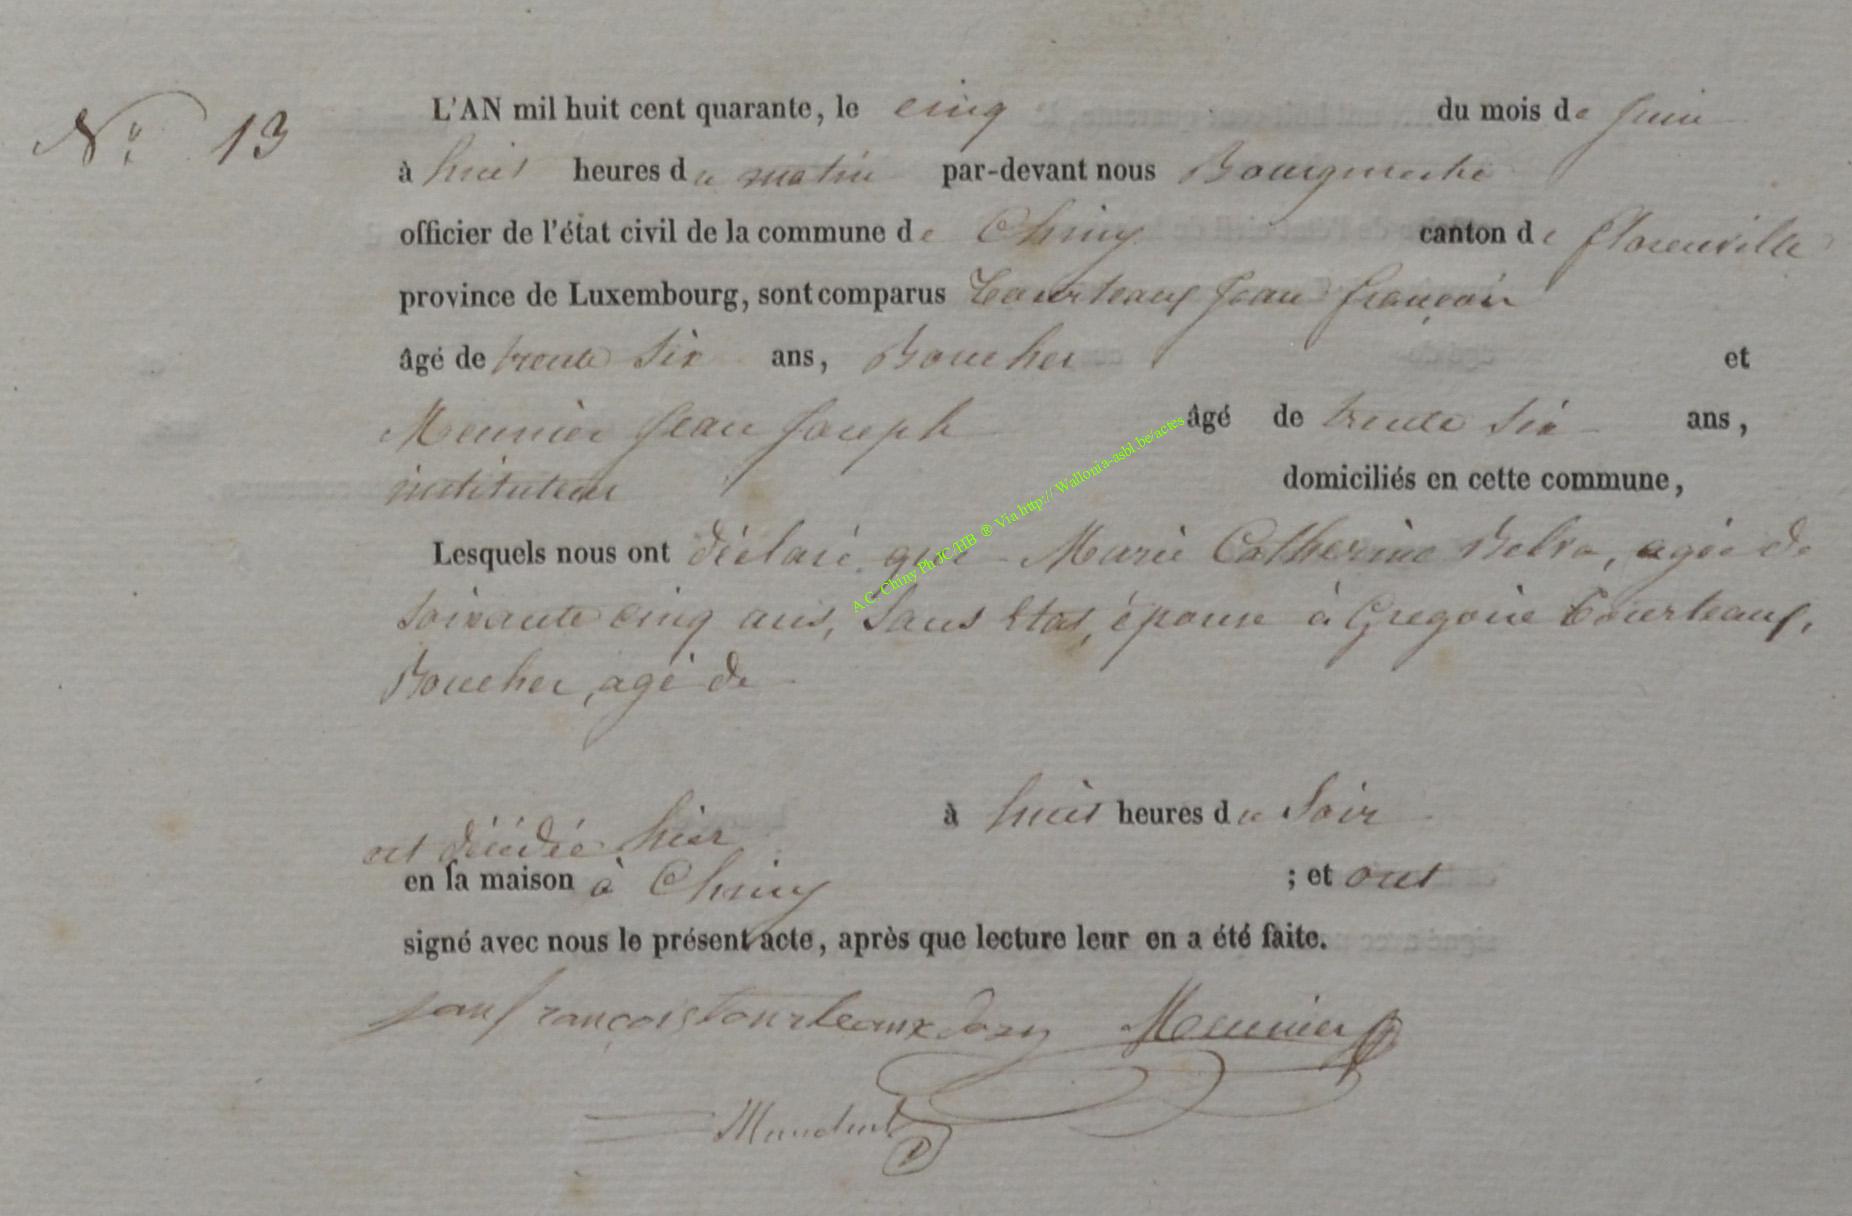 N° 13
L'AN mil huit cent quarante, le cinq du mois de juin
à huit heures du matin par-devant nous Bourgmestre
officier de l'état civil de la commune de Chiny canton de florenville
province de Luxembourg, sont comparus Tourteaux Jean françois
âgé de trente six ans, Boucher et
Meunier Jean Joseph âgé de trente six ans,
instituteur domiciliés en cette commune,
Lesquels nous ont déclaré que Marie Catherine agée de
soixante cinq ans, Sans Etat, épouse à Gregoire Tourteaux,
Boucher, agé de
est décédée hier à huit heures du Soir
en sa maison à Chiny ; et ont
signé avec nous le présent acte, après que lecture leur en a été faite.
jean françois tourteaux Meunier
A.C. Chiny Ph JC/HB ® Via http:// Wallonia-asbl.be/actes